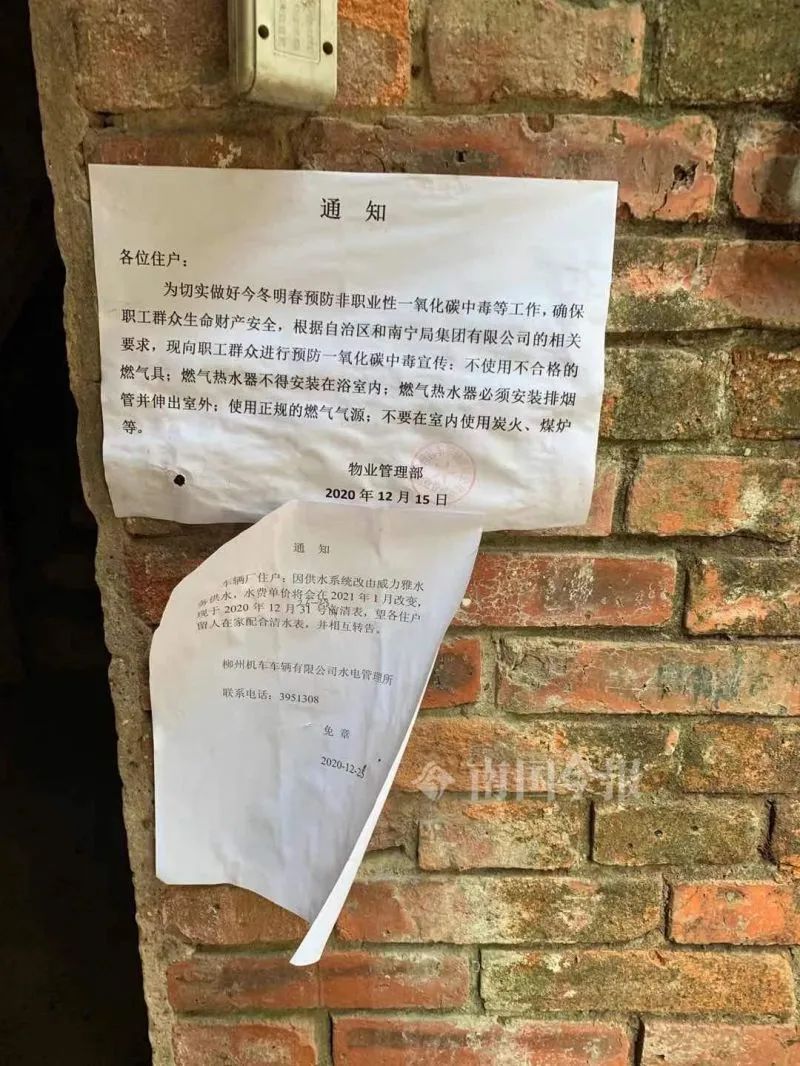 通 知
各位住户：
为切实做好今冬明春预防非职业性一氧化碳中毒等工作，确保
职工群众生命财产安全，根据自治区和南宁局集团有限公司的相关
要求，现向职工群众进行预防一氧化碳中毒宣传：不使用不合格的
燃气具；燃气热水器不得安装在浴室内；燃气热水器必须安装排烟
管并伸出室外；使用正规的燃气气源；不要在室内使用炭火、煤炉
等。
物业管理部
2020 年 12 月 15 日
通 知
车辆厂住户：因供水系统改由威力雅水
务供水，水费单价将会在 2021 年 1 月改变，
现于 2020 年 12 月 31 号前清表，望各住户
留人在家配合清水表，并相互转告。
柳州机车车辆有限公司水电管理所
联系电话：3951308
免 章
2020-12-25
南国今报